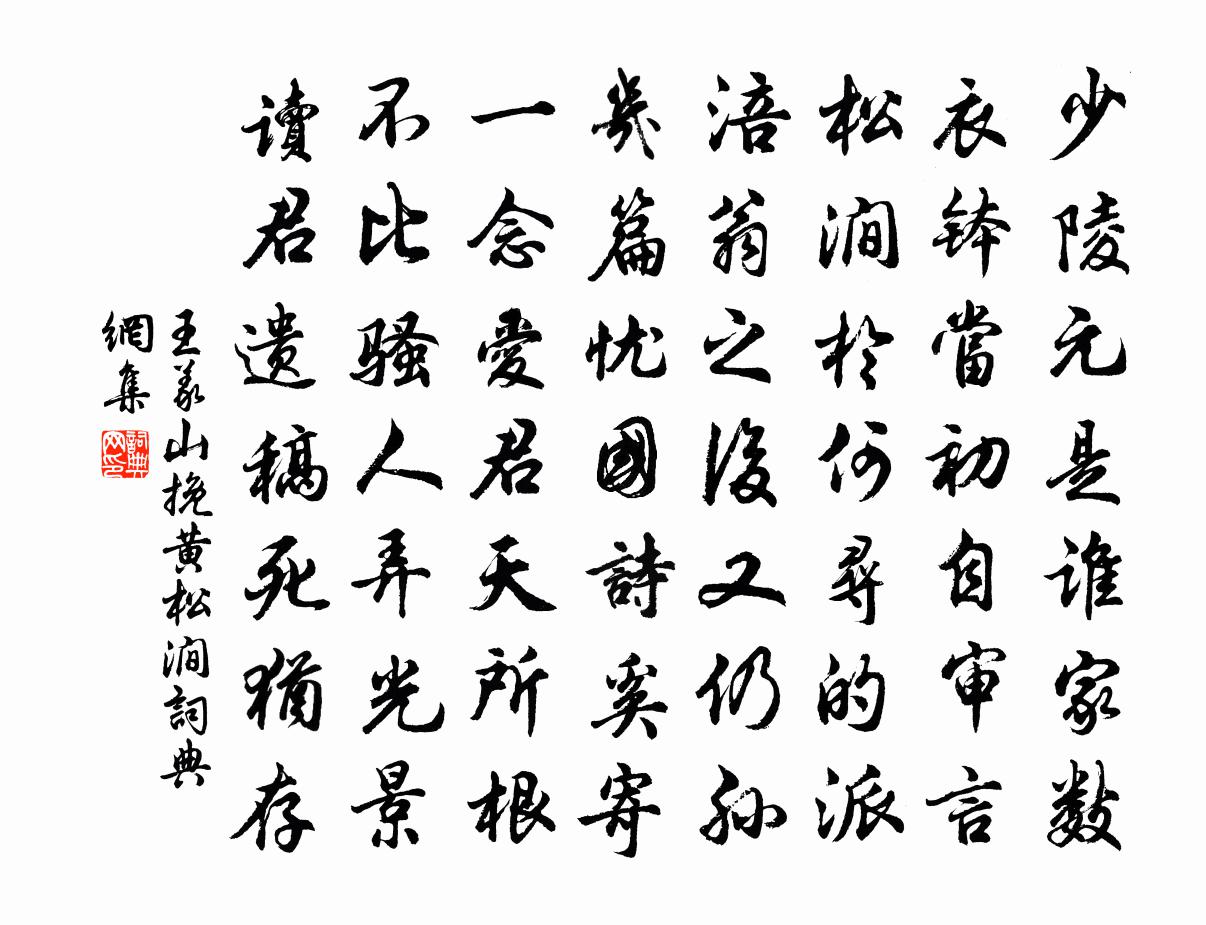 少陵元是谁家数
衣钵當初自审言
松澗於何尋的派
涪翁之後又仍孙
幾篇忧國詩奚寄
一念愛君天所根
不比骚人弄光景
讀君遗稿死猶存
王義山挽黄松澗詞典
網集
詞典
网印